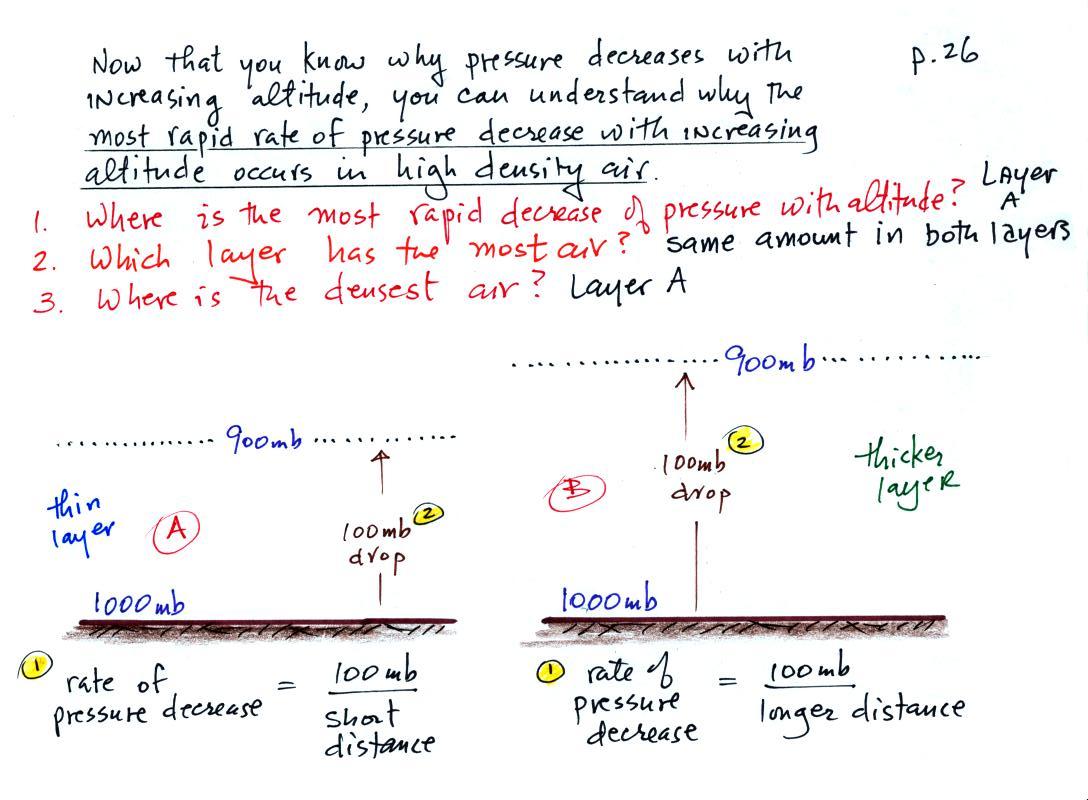 Now that you know why pressure decreases with
p.26
increasing altitude, you can understand why the
most rapid rate of pressure decrease with increasing
altitude occurs in high density air.
1. Where is the most rapid decrease of pressure with altitude? Layer A
2. Which layer has the most air? same amount in both layers
3. Where is the densest air? Layer A
900mb
900mb
thin
layer
A
100mb 2
drop
1000mb
B
100mb 2
drop
thicker
layer
1000mb
1 rate of
pressure decrease = 100mb
short
distance
1 rate of
pressure
decrease = 100mb
longer distance